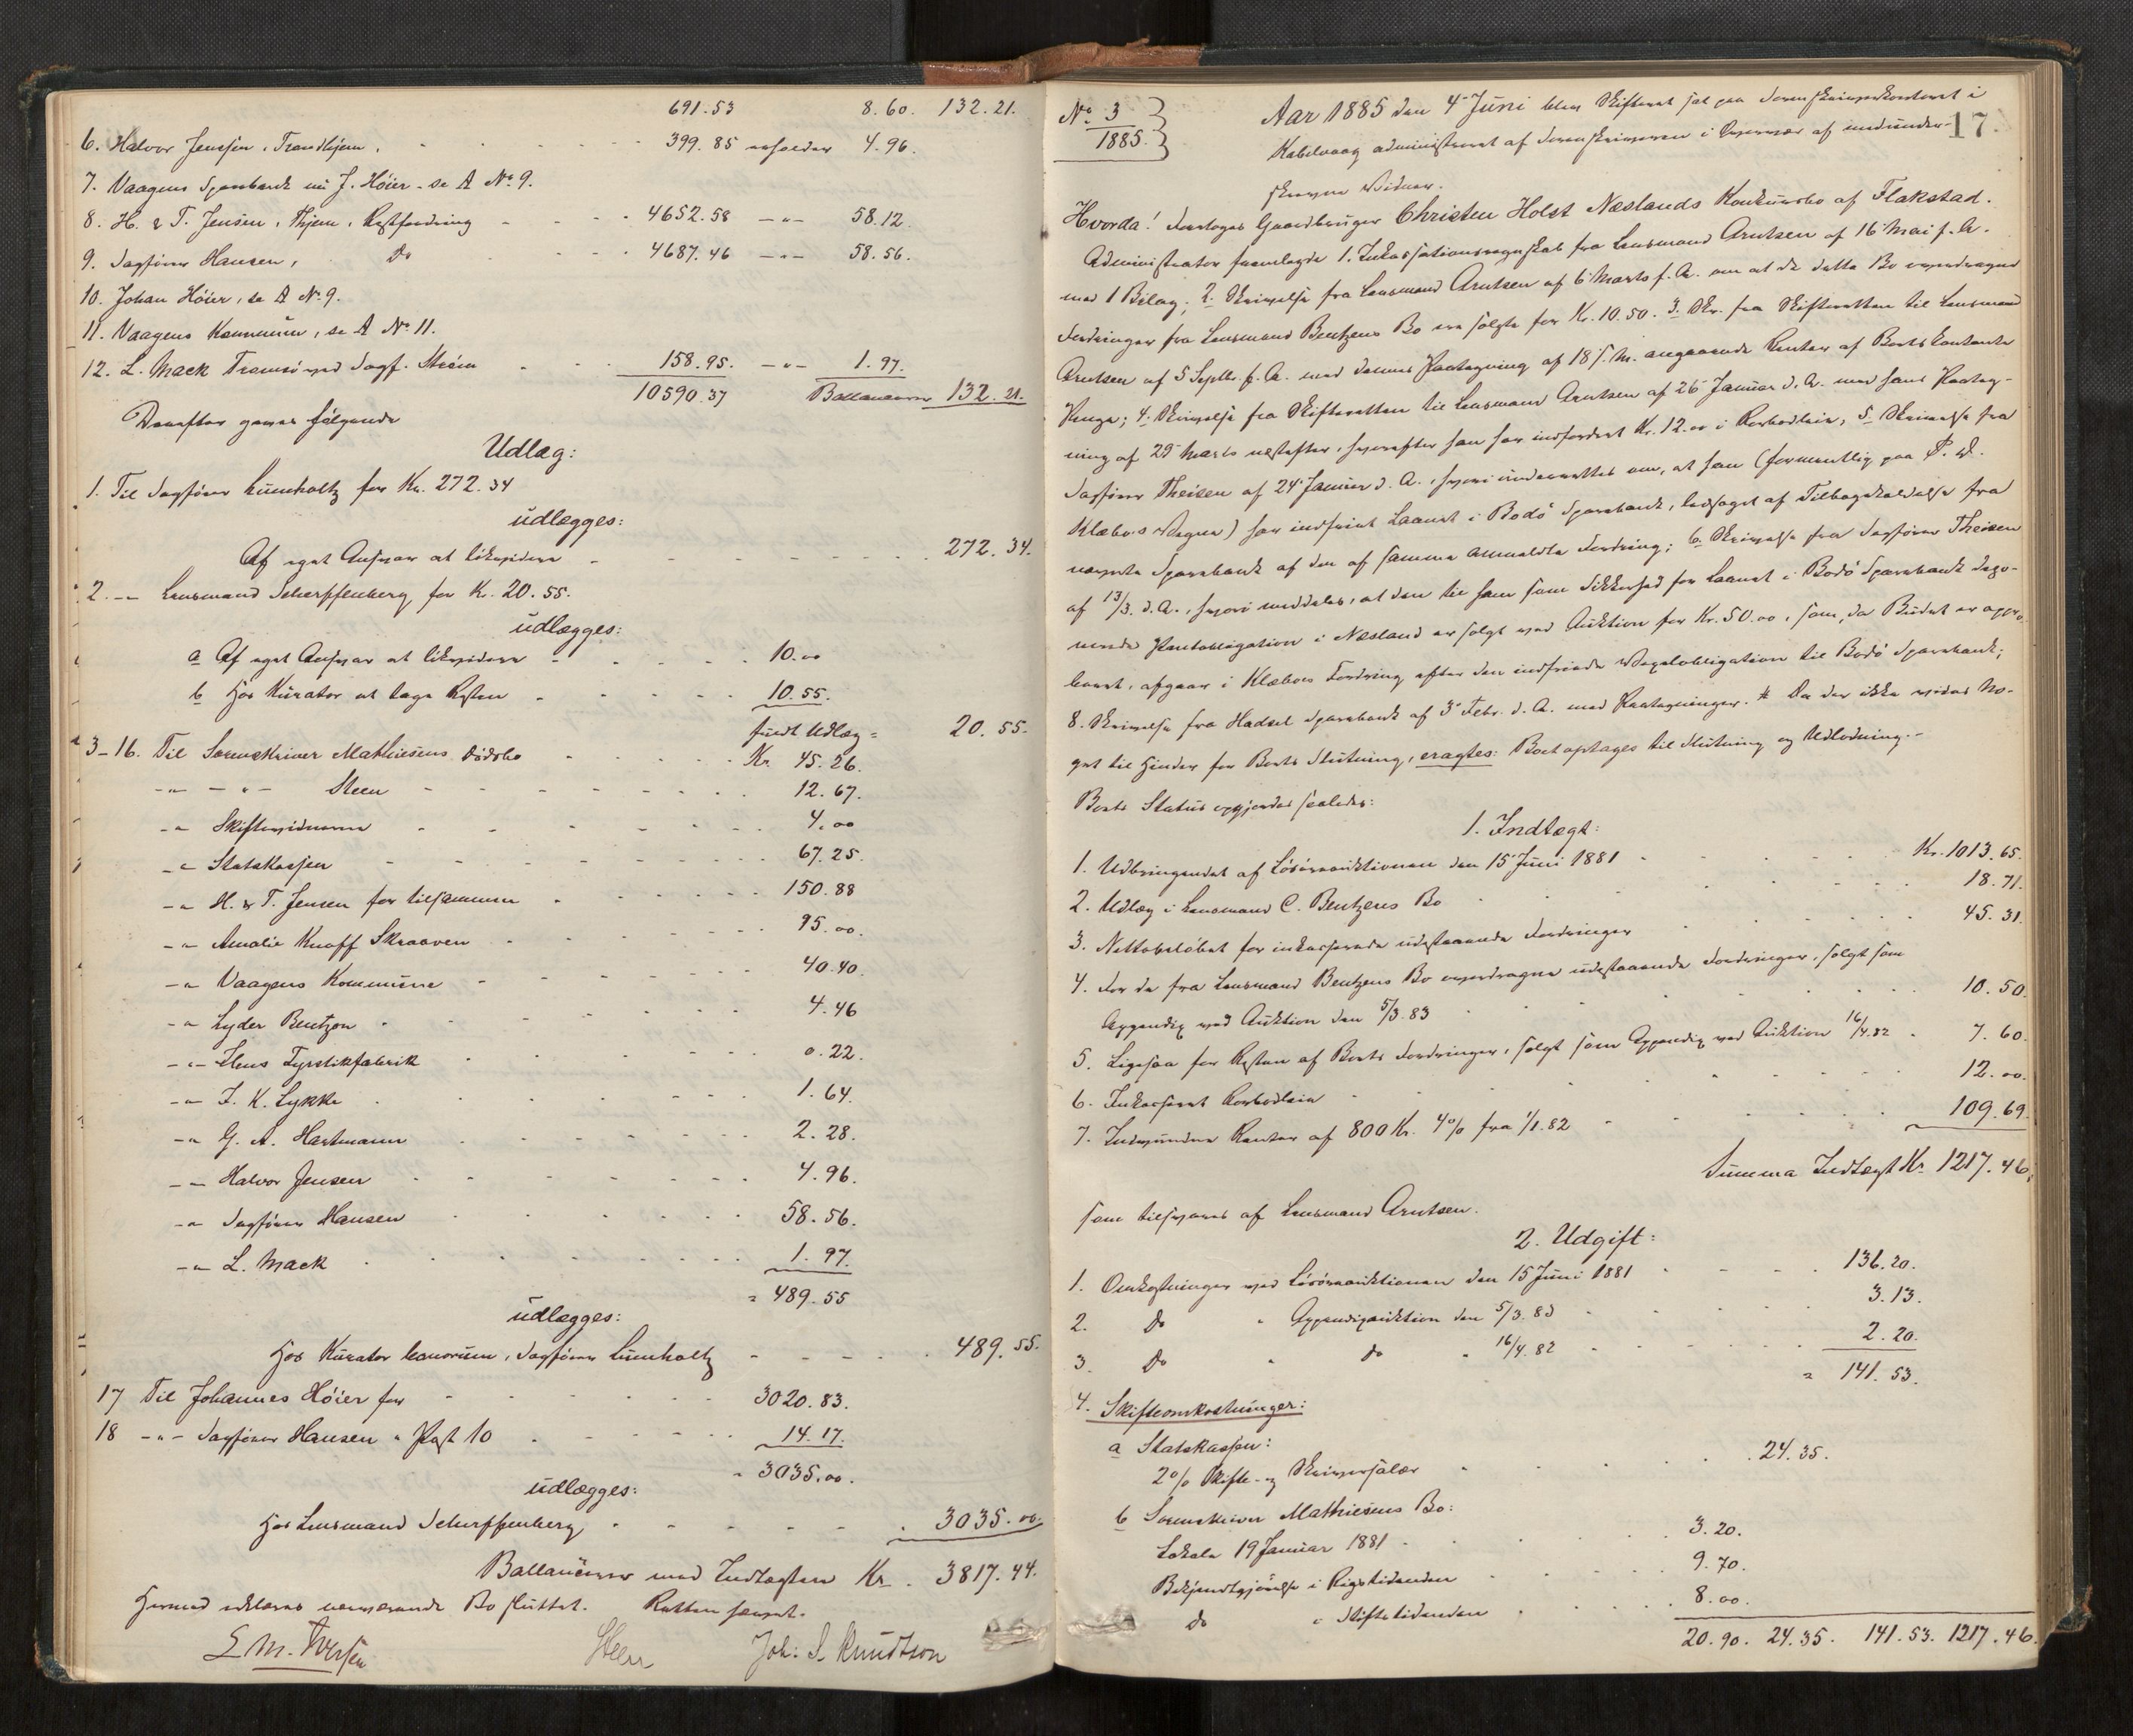 691.53 8.60. 132.21.
6. Halvor Jenssen, Trondhjem, 399.85 erholder 4.96.
7. Vaagens Sparebank nu J. Høier - se A No 9.
8. H. & T. Jensen, Thjem, Restfordring 4652.58 -"- 58.12.
9. Sagfører Hansen, Do 4687.46 -"- 58.56.
10. Johan Høier, se A No 9.
11. Vaagens Kommune, se A No 11.
12. L. Mack Tromsø ved Sagf. Strøm 158.95. -"- 1.97.
10590.37 Ballancerer 132.21.
Derefter gjøres følgende
Udlæg:
1. Til Sagfører Lumholtz for Kr. 272.34
udlægges:
Af eget Ansvar at likvidere 272.34.
2. -"- Lensmand Scherpfenberg for Kr. 20.55.
udlægges:
a Af eget Ansvar at likvidere 10.00
b Hos Kurator at tage Resten 10.55.
fuldt Udlæg = 20.55.
3-16. Til Sorenskriver Mathiesens Dødsbo Kr. 45.26.
-"- -"- Steen 12.67.
-"- Skiftevidnerne 4.00
-"- Statskassen 67.25.
-"- H. & T. Jensen for tilsammen 150.88
-"- Amalie Knoff Skraaven 95.00.
-"- Vaagens Kommune 40.40.
-"- Lyder Bentzon 4.46
-"- Fyrstikfabrik 0.22.
-"- J. K. Lykke 1.64.
-"- G. A. Hartmann 2.28.
-"- Halvor Jensen 4.96.
-"- Sagfører Hansen 58.56.
-"- L. Mack 1.97.
= 489.55
udlægges:
Hos Kurator bonorum, Sagfører Lumholtz 489.55.
17 Til Johannes Høier for 3020.83.
18 -"- Sagfører Hansen " Post 10 14.17.
= 3035.00.
udlægges:
Hos Lensmand Scherpfenberg 3035.00.
Ballancerer med Indtægten Kr. 3817.44.
Hermed erklæres nærværende Bo sluttet. Retten hævet.
Steen Joh: S. Knudtson
No 3
1885.
17.
Aar 1885 den 4de Juni blev Skifteret sat paa Sorenskriverkontoret i
Kabelvaag administreret af Sorenskriveren i Overvær af underskrevne Vidner.
Hvorda! Foretoges Gaardbruger Christen Holst Næslands Konkursbo af Flakstad.
Administrator fremlagde 1. Inkassationsregnskab fra Lensmand Arntsen af 16 Mai f. A.
med 1 Bilag; 2. Skrivelse fra Lensmand Arntsen af 6 Marts f. A. om at de dette Bo overdragne
Fordringer fra Lensmand Bentzens Bo ere solgte for Kr. 10.50. 3. Skr. fra Skifteretten til Lensmand
Arntsen af 5 Septbr. f. A. med dennes Paategning af 18 s. M. angaaende Renter af Boets kontante
Penge; 4. Skrivelse fra Skifteretten til Lensmand Arntsen af 26 Januar d. A. med hans Paateg-
ning af 29 Marts næstefter, hvorefter han har indfordret Kr. 12.00 i Rorbodleie, 5. Skrivelse fra
Sagfører Theisen af 24 Januar d. A., hvori underrettes om, at han (formentlig paa P. W.
Klæboes Vegne) har indfriet Laanet i Bodø Sparebank, ledsaget af Tilbagekaldelse fra
nævnte Sparebank af den af samme anmeldte Fordring; 6. Skrivelse fra Sagfører Theisen
af 13/3. d. A., hvori meddeles, at den til ham som Sikkerhed for Laanet i Bodø Sparebank depo-
nerede Pantobligation i Næsland er solgt ved Auktion for Kr. 50.00, som, da Budet er appro-
beret, afgaar i Klæboes Fordring efter den indfriede Vexelobligation til Bodø Sparebank;
8. Skrivelse fra Hadsel Sparebank af 3 Febr. d. A. med Paategninger. Da der ikke vides No-
get til Hinder for Boets Slutning, eragtes: Boet optages til Slutning og Udlodning.-
Boets Status opgjordes saaledes:
1. Indtægt:
1. Udbringendet af Løsøreauktionen den 15 Juni 1881 Kr. 1013.65.
2. Udlæg i Lensmand C. Bentzens Bo 18.71.
3. Nettobeløbet for inkasserede udestaaende Fordringer 45.31.
4. For de fra Lensmand Bentzens Bo overdragne udestaaende Fordringer, solgt som
Appendix ved Auktion den 5/3.83 10.50.
5. Ligesaa for Resten af Boets Fordringer, solgt som Appendix ved Auktion 16/4.82 7.60.
6. Inkasseret Rorbodleie 12.00.
7. Indvundne Renter af 800 Kr. 4% fra 1/1.82 109.69.
Summa Indtægt Kr. 1217.46,
som tilsvares af Lensmand Arntsen.
2. Udgift:
1. Omkostninger ved Løsøreauktionen den 15 Juni 1881 136.20.
2. Do " Appendixauktion den 5/3.83 3.13.
3. Do " do " 16/4.82 2.20.
= 141.53.
4. Skifteomkostninger:
a Statskassen:
2% Skifte- og Skriversalær 24.35.
b Sorenskriver Mathiesens Bo:
Lokale 19 Januar 1881 3.20.
Bekjendtgjørelse i Rigstidenden 9.70.
do " Stiftstidenden 8.00.
20.90. 24.35. 141.53. 1217.46.